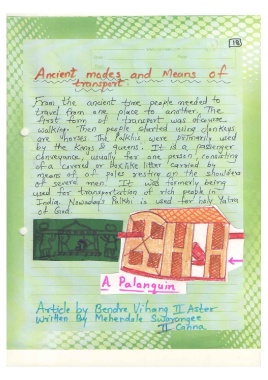 18
Ancient modes and Means of
transport
From the ancient time people needed to
travel from one place to another. The
first form of transport was ofcourse
walking. Then people started using donkeys
and horses. The Palkhis were primarily used
by the Kings & queens. It is a passenger
conveyance, usually for one person, consisting
of a covered or boxlike litter carried by
means of, of poles resting on the shoulders
of several men. It was formerly being
used for transportation of rich people in
India. Nowadays Palkhi is used for holy Yatra
of God.
A Palanquin
Article by Bendre Vihang II Aster
Written By Mehendale
II Canna